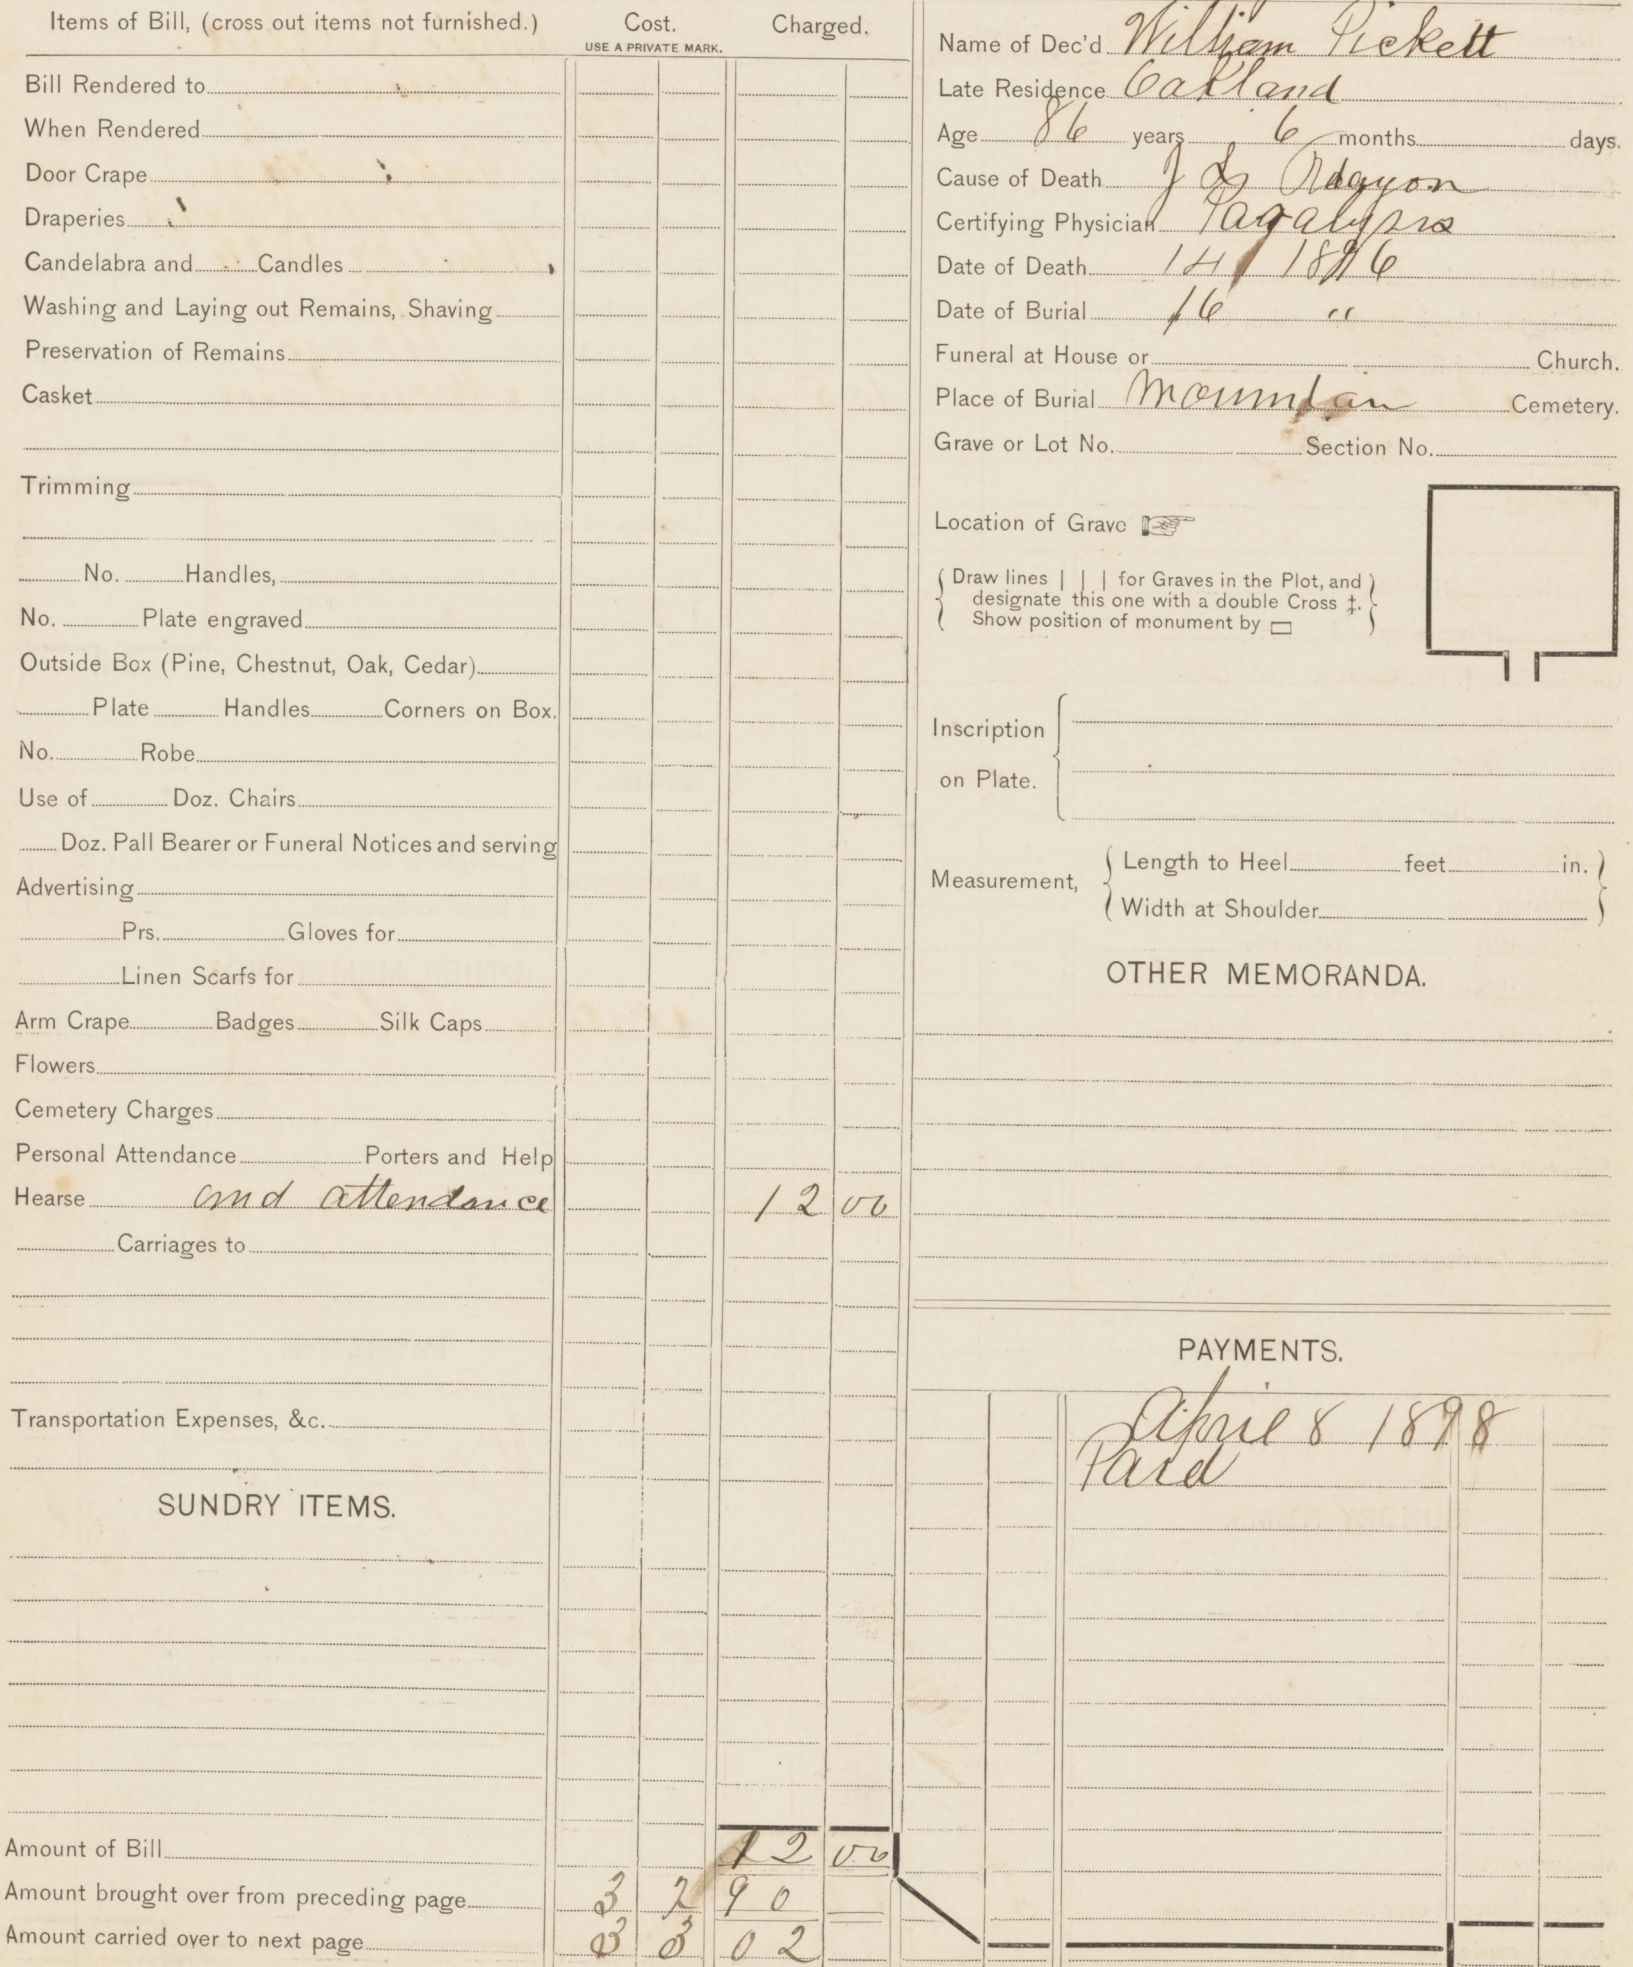 Items of Bill, (cross out items not furnished.) Cost. Charged.
USE A PRIVATE MARK.
Bill Rendered to
When Rendered
Door Crape
Draperies
Candelabra and Candles
Washing and Laying out Remains, Shaving
Preservation of Remains
Casket
Trimming
No. Handles,
No. Plate engraved
Outside Box (Pine, Chestnut, Oak, Cedar)
Plate Handles Corners on Box.
No. Robe
Use of Doz. Chairs
Doz. Pall Bearer or Funeral Notices and serving
Advertising
Prs. Gloves for
Linen Scarfs for
Arm Crape Badges Silk Caps
Flowers
Cemetery Charges
Personal Attendance Porters and Help
Hearse and attendance 12 00
Carriages to
Transportation Expenses, &c.
SUNDRY ITEMS.
Amount of Bill 12 00
Amount brought over from preceding page 3 2 9 0
Amount carried over to next page 3 3 0 2
Name of Dec'd William Pickett
Late Residence Oakland
Age 86 years 6 months days.
Cause of Death J
Certifying Physician Paralysis
Date of Death 14 1896
Date of Burial 16 "
Funeral at House or Church.
Place of Burial Mountain Cemetery.
Grave or Lot No. Section No.
Location of Grave ☞
Draw lines | | | for Graves in the Plot, and
designate this one with a double Cross ‡.
Show position of monument by ▭
Inscription
on Plate.
Measurement, Length to Heel feet in.
Width at Shoulder
OTHER MEMORANDA.
PAYMENTS.
April 8 1898
Paid